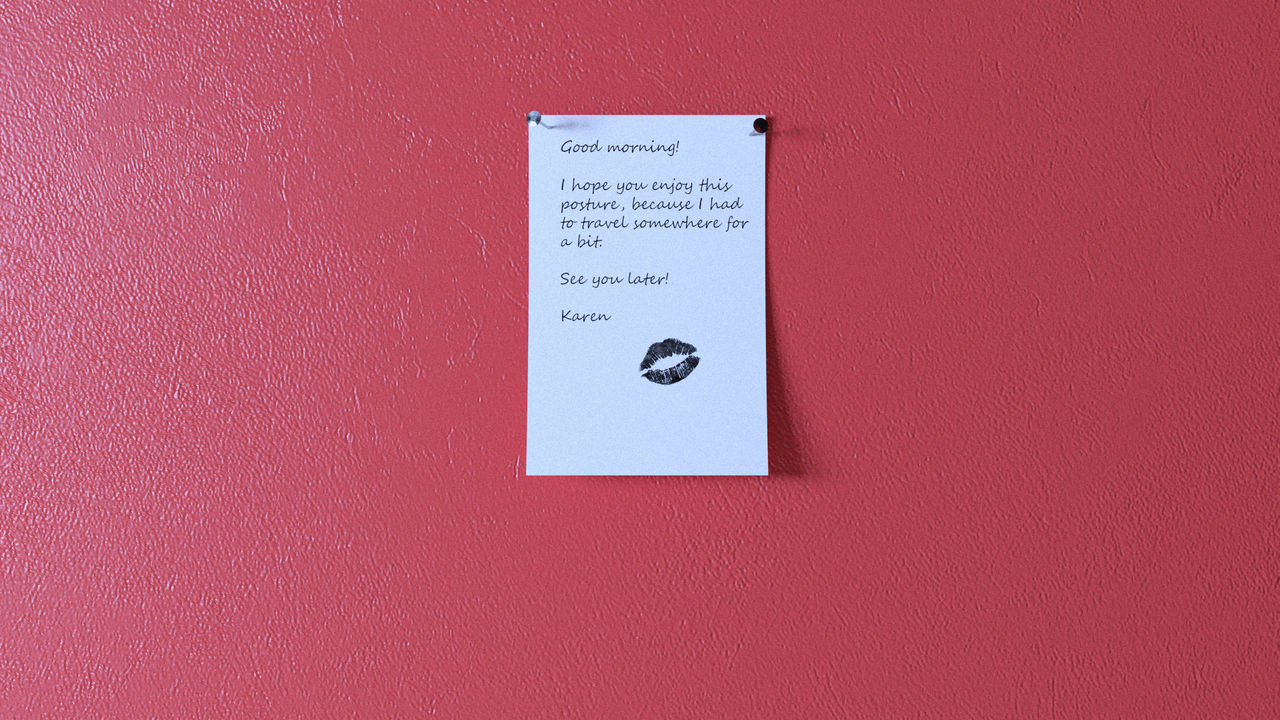 Good morning!
I hope you enjoy this
posture, because I had
to travel somewhere for
a bit.
See you later!
Karen